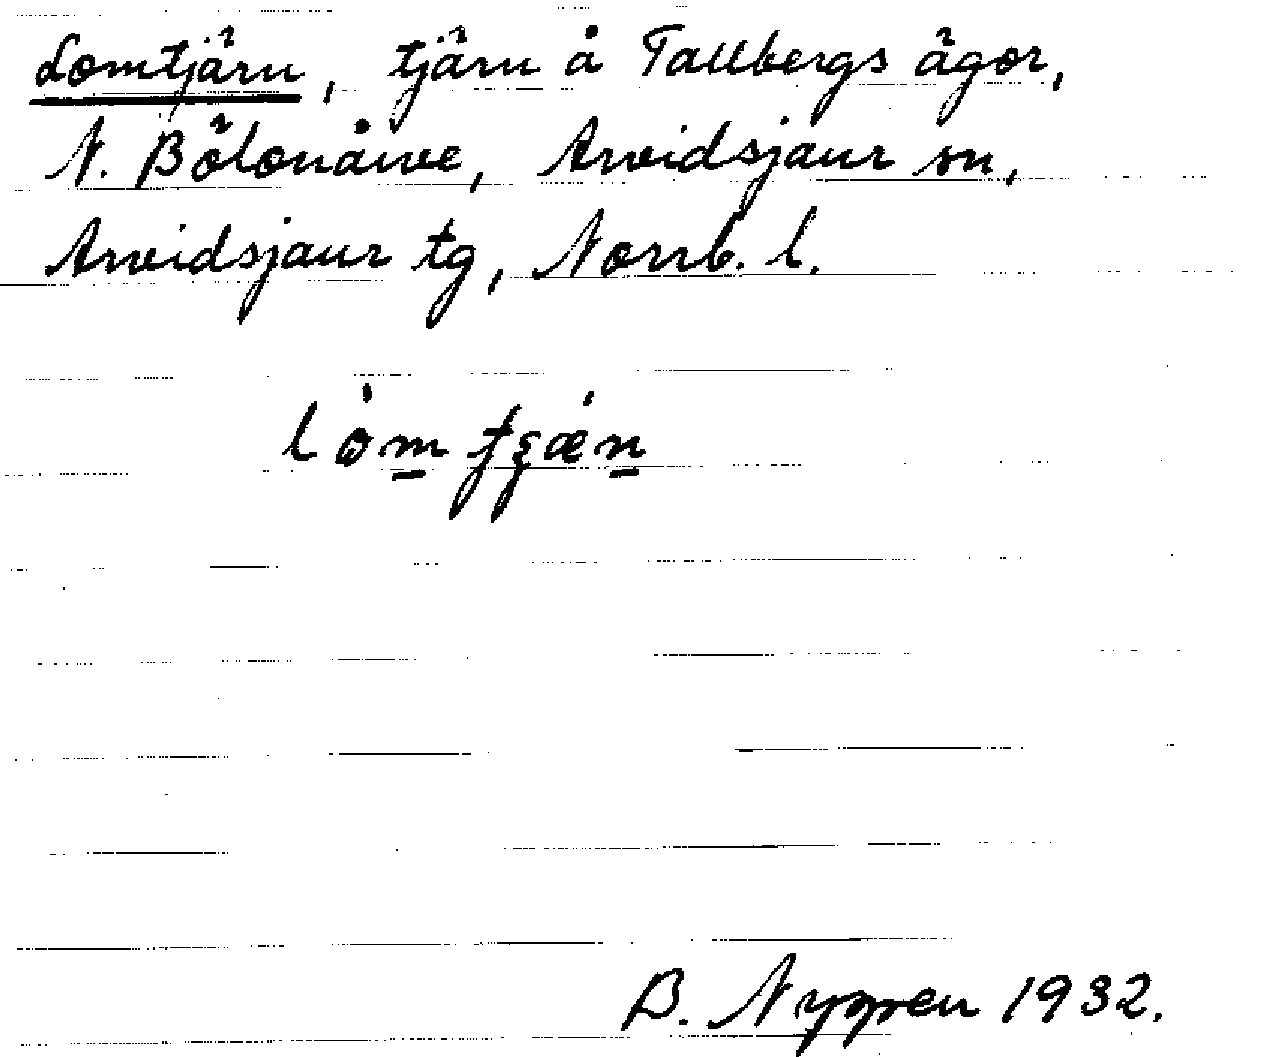 Lomtjärn, tjärn å Tallbergs ägor,
N. Bölonåive, Arvidsjaur sn,
Arvidsjaur tg, Norrb. l.
B. Nyppen 1932.